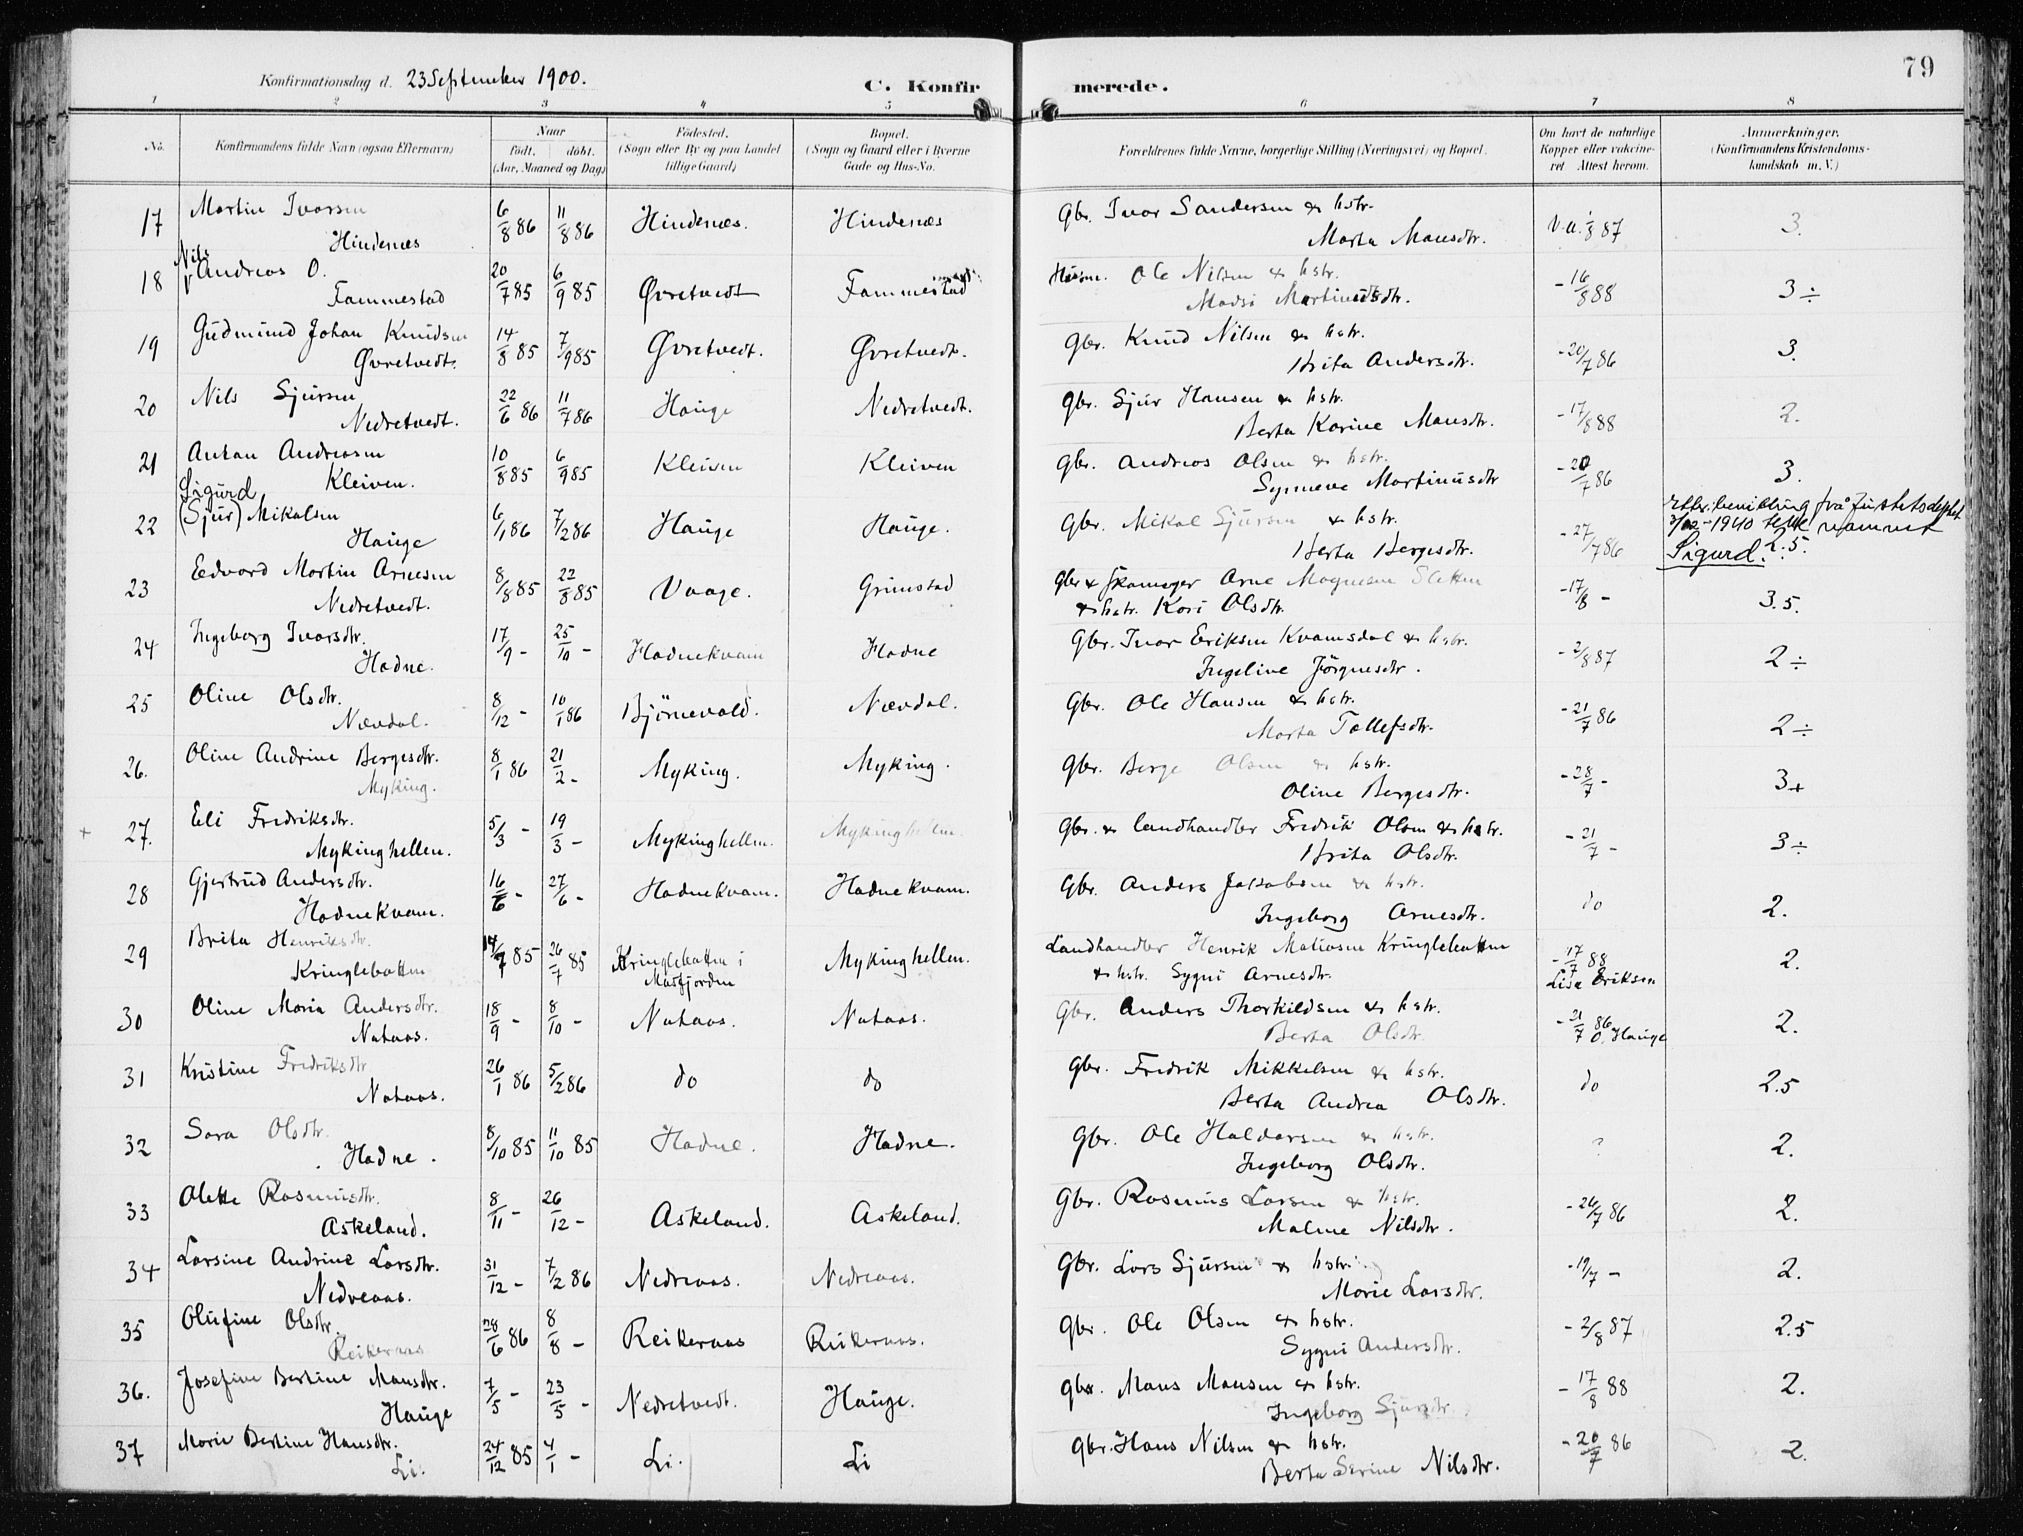 79
Konfirmationsdag d. 23 September 1900.
C. Konfirmerede.
1 2 3 4 5 6 7 8
No. Konfirmandens fulde Navn (ogsaa Efternavn) Naar født. døbt. (Aar, Maaned og Dag) Födested. (Sogn eller By og paa Landet tillige Gaard) Bopæl. (Sogn og Gaard eller i Byerne Gade og Hus-No. Forældrenes fulde Navne, borgerlige Stilling (Næringsvei) og Bopæl. Om havt de naturlige Kopper eller vaccineret Attest herom. Anmærkninger. (Konfirmandens Kristendomskundskab m. V.)
17 Martin Ivarsen 6/8 86 11/8 86 Hindenæs. Hindenæs Gbr. Ivar Sandersen & hstr. v.a. 1/8 87 3.
Hindenæs Marta Mansdtr.
Nils
18 Andreas O. 20/7 85 6/9 85 Øvretvedt Fammestad Husm. Ole Nilsen & hstr. - 16/8 88 3 ÷
Fammestad Madsi Martinusdtr.
19 Gudmund Johan Knudsen 14/8 85 7/9 85 Øvretvedt. Øvretvedt. Gbr. Knud Nilsen & hstr. - 20/7 86 3.
Øvretvedt. Brita Andersdtr.
20 Nils Sjursen 22/6 86 11/7 86 Hauge Nedretvedt. Gbr. Sjur Hansen & hstr. - 17/8 88 2.
Nedretvedt. Berta Karine Mansdtr.
21 Anton Andreasen 10/8 85 6/9 85 Kleiven Kleiven Gbr. Andreas Olsen & hstr. - 20/7 86 3.
Kleiven. Synneve Martinusdtr
Sigurd
22 (Sjur) Mikalsen 6/1 86 7/2 86 Hauge Hauge. Gbr. Mikal Sjursen & hstr. - 27/7 86 2.5.
Hauge Berta Bergesdtr.
etter bevilling frå Justitsdeptet
1940 namnet
Sigurd.
23 Edvard Martin Arnesen 8/8 85 22/8 85 Vaage. Grimstad Gbr & Skomager Arne Magnesen Sletten - 17/8 - 3.5.
Nedretvedt. & hstr. Kari Olsdtr.
24 Ingeborg Ivarsdtr. 17/9 - 25/10 - Hadnekvam Hadne Gbr. Ivar Eriksen Kvamsdal & hstr. - 2/8 87 2 ÷
Hadne. Ingeline Jörgnesdtr.
25 Oline Olsdtr. 8/12 - 10/1 86 Björnevold. Nævdal. Gbr. Ole Hansen & hstr. - 21/7 86 2 ÷
Nævdal. Marta Tollefsdtr.
26. Oline Andrine Bergesdtr. 8/1 86 21/2 - Myking. Myking. Gbr. Berge Olsen & hstr. - 28/7 - 3+
Myking. Oline Bergesdtr.
+ 27. Eli Fredriksdtr. 5/3 - 19/3 - Mykinghellen. Mykinghellen. Gbr. & landhandler Fredrik Olsen & hstr. - 21/7 - 3 ÷
Mykinghellen. Brita Olsdtr.
28 Gjertrud Andersdtr. 16/6 - 27/6 - Hadnekvam. Hadnekvam. Gbr. Anders Jakobsen & hstr. do 2.
Hadnekvam. Ingeborg Arnesdtr.
29 Brita Henriksdtr. 14/7 85 26/7 85 Kringlebotten i Masfjorden Mykinghellen. Landhandler Henrik Matiasen Kringlebotten - 17/7 88 2.
Kringlebotten & hstr. Sygni Arnesdtr. Lisa Eriksen
30 Oline Maria Andersdtr. 18/9 - 8/10 - Nataas. Nataas. Gbr. Anders Thorkildsen & hstr. - 21/7 86 2.
Nataas. Berta Olsdtr. O. Hauge
31 Kristine Fredriksdtr 26/1 86 5/2 86 do do Gbr. Fredrik Mikkelsen & hstr. do 2.5
Nataas. Berta Andrea Olsdtr.
32 Sara Olsdtr. 8/10 85 11/10 85 Hadne. Hadne. Gbr. Ole Haldorsen & hstr. ? 2.
Hadne. Ingeborg Olsdtr.
33 Olette Rasmusdtr. 8/11 - 26/12 - Askeland. Askeland. Gbr. Rasmus Larsen & hstr. - 26/7 86 2.
Askeland. Malene Nilsdtr.
34 Larsine Andrine Larsdtr. 31/12 - 7/2 86 Nedreaas. Nedreaas. Gbr. Lars Sjursen & hstr. - 19/7 - 2.
Nedreaas. Marie Larsdtr.
35 Olufine Olsdtr. 28/6 86 8/8 - Reikeraas Reikeraas. Gbr. Ole Olsen & hstr. - 2/8 87 2.5
Reikeraas Sygni Andersdtr.
36. Josefine Bertine Mansdtr. 7/5 - 23/5 - Nedretvedt. Hauge. Gbr. Mans Mansen & hstr. - 17/8 88 2.
Hauge Ingeborg Sjursdtr.
37 Marie Bertine Hansdtr. 24/12 85 4/1 - Li. Li Gbr. Hans Nilsen & hstr. - 20/7 86 2.
Li. Berta Serine Nilsdtr.